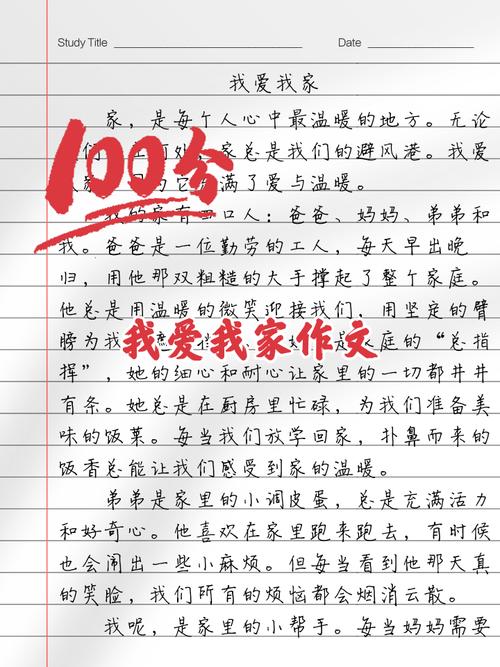 Study Title Date
我爱我家
家，是每个人心中最温暖的地方。无论
何处，家总是我们的避风港。我爱
满了爱与温暖。
100分
我的家有四口人：爸爸、妈妈、弟弟和
我。爸爸是一位勤劳的工人，每天早出晚
归，用他那双粗糙的大手撑起了整个家庭。
他总是用温暖的微笑迎接我们，用坚定的臂
膀为我
是家庭的“总指
我爱我家作文
挥”，她的细心和耐心让家里的一切都井井
有条。她总是在厨房里忙碌，为我们准备美
味的饭菜。每当我们放学回家，扑鼻而来的
饭香总能让我们感受到家的温暖。
弟弟是家里的小调皮蛋，总是充满活力
和好奇心。他喜欢在家里跑来跑去，有时候
也会闹出一些小麻烦。但每当看到他那天真
的笑脸，我们所有的烦恼都会烟消云散。
我呢，是家里的小帮手。每当妈妈需要